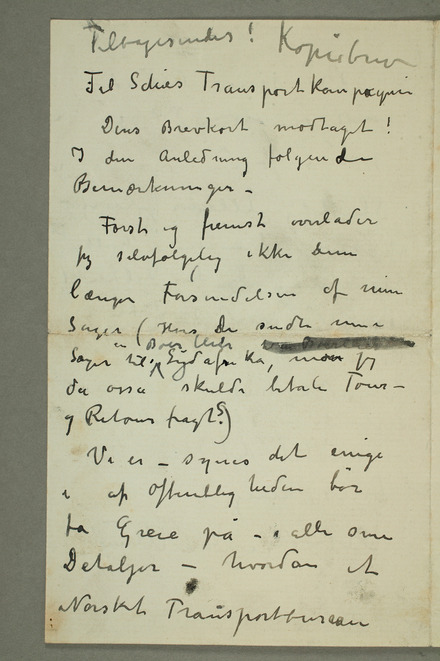 Tilbagesendes! Kopiebrev
Til Schies Transportkompagni
Deres Brevkort modtaget!
I den Anledning følgende
Bemærkninger –
Først og fremst overlader
jeg selvfølgelig ikke Dem
længer Forsendelsen af mine
Sager (Hvis De sendte mine
en Boer
Sager til Sydafrika, mon jeg
da ossa skulde betale Tour–
og Retour fragt?)
Vi er – synes det enige
i at Offentligheden bør
fa Greie på – i alle sine
Detaljer – hvordan et
Norskt Transportbureau